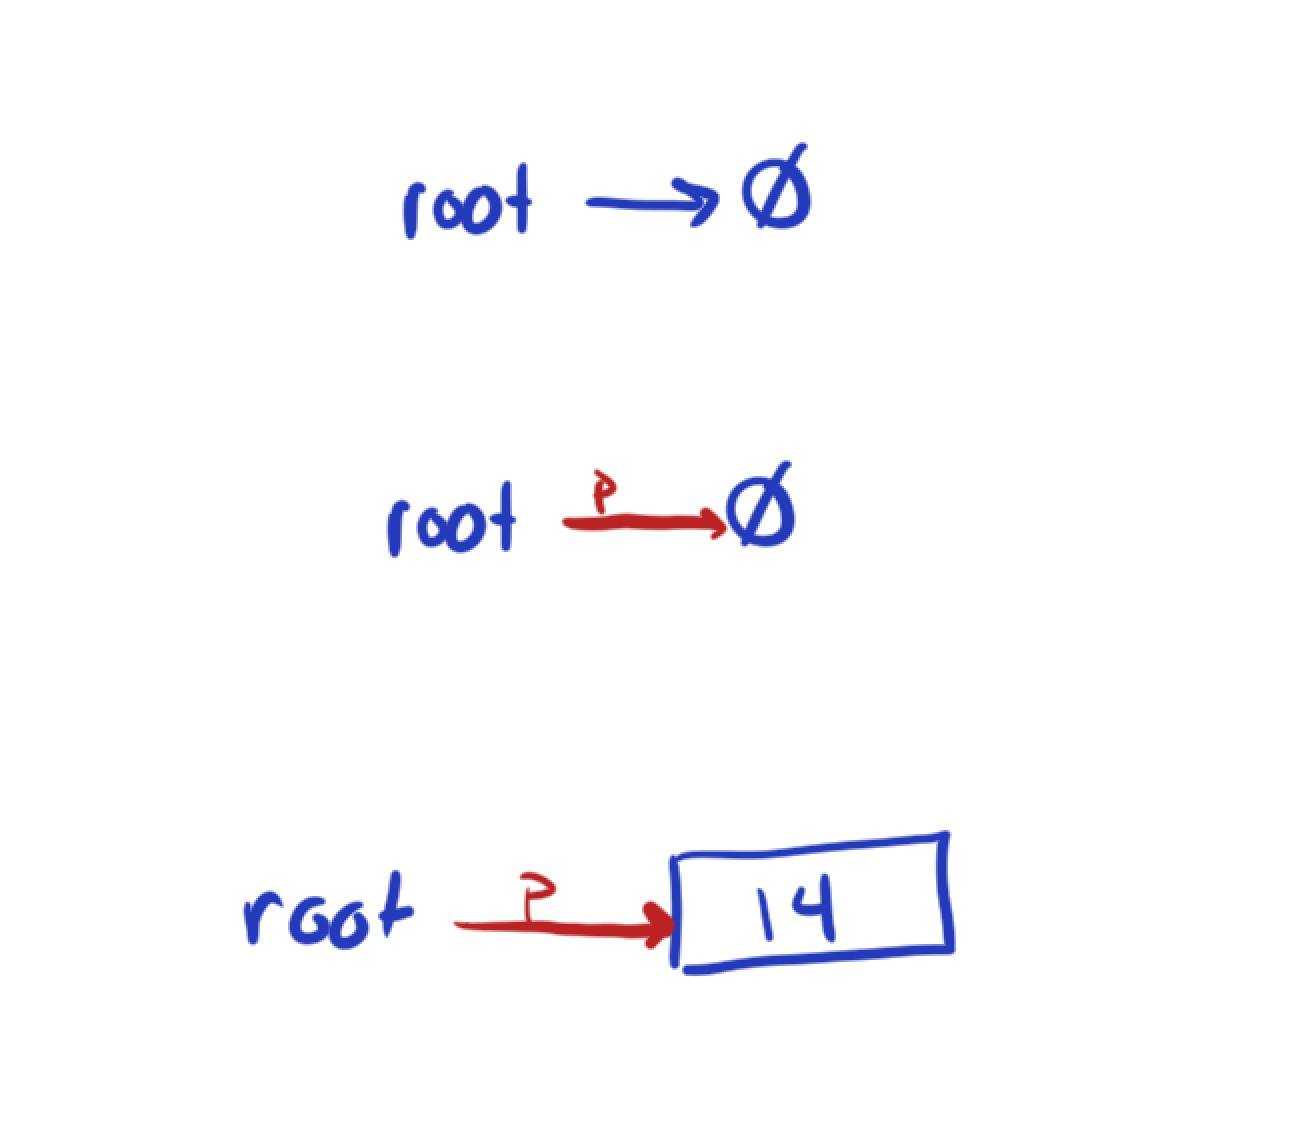 root → Ø
root P → Ø
root P → 14